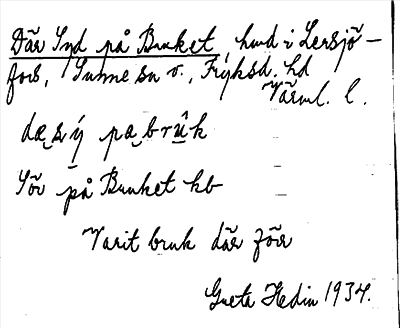 Där Syd på Bruket, hmd i Lersjö-
fors, Sunne sn o., Fryksd. hd
Värml. l.
dæ sý pæ brūk
Sör på Bruket hb
Varit bruk där förr
Greta Hedin 1934.